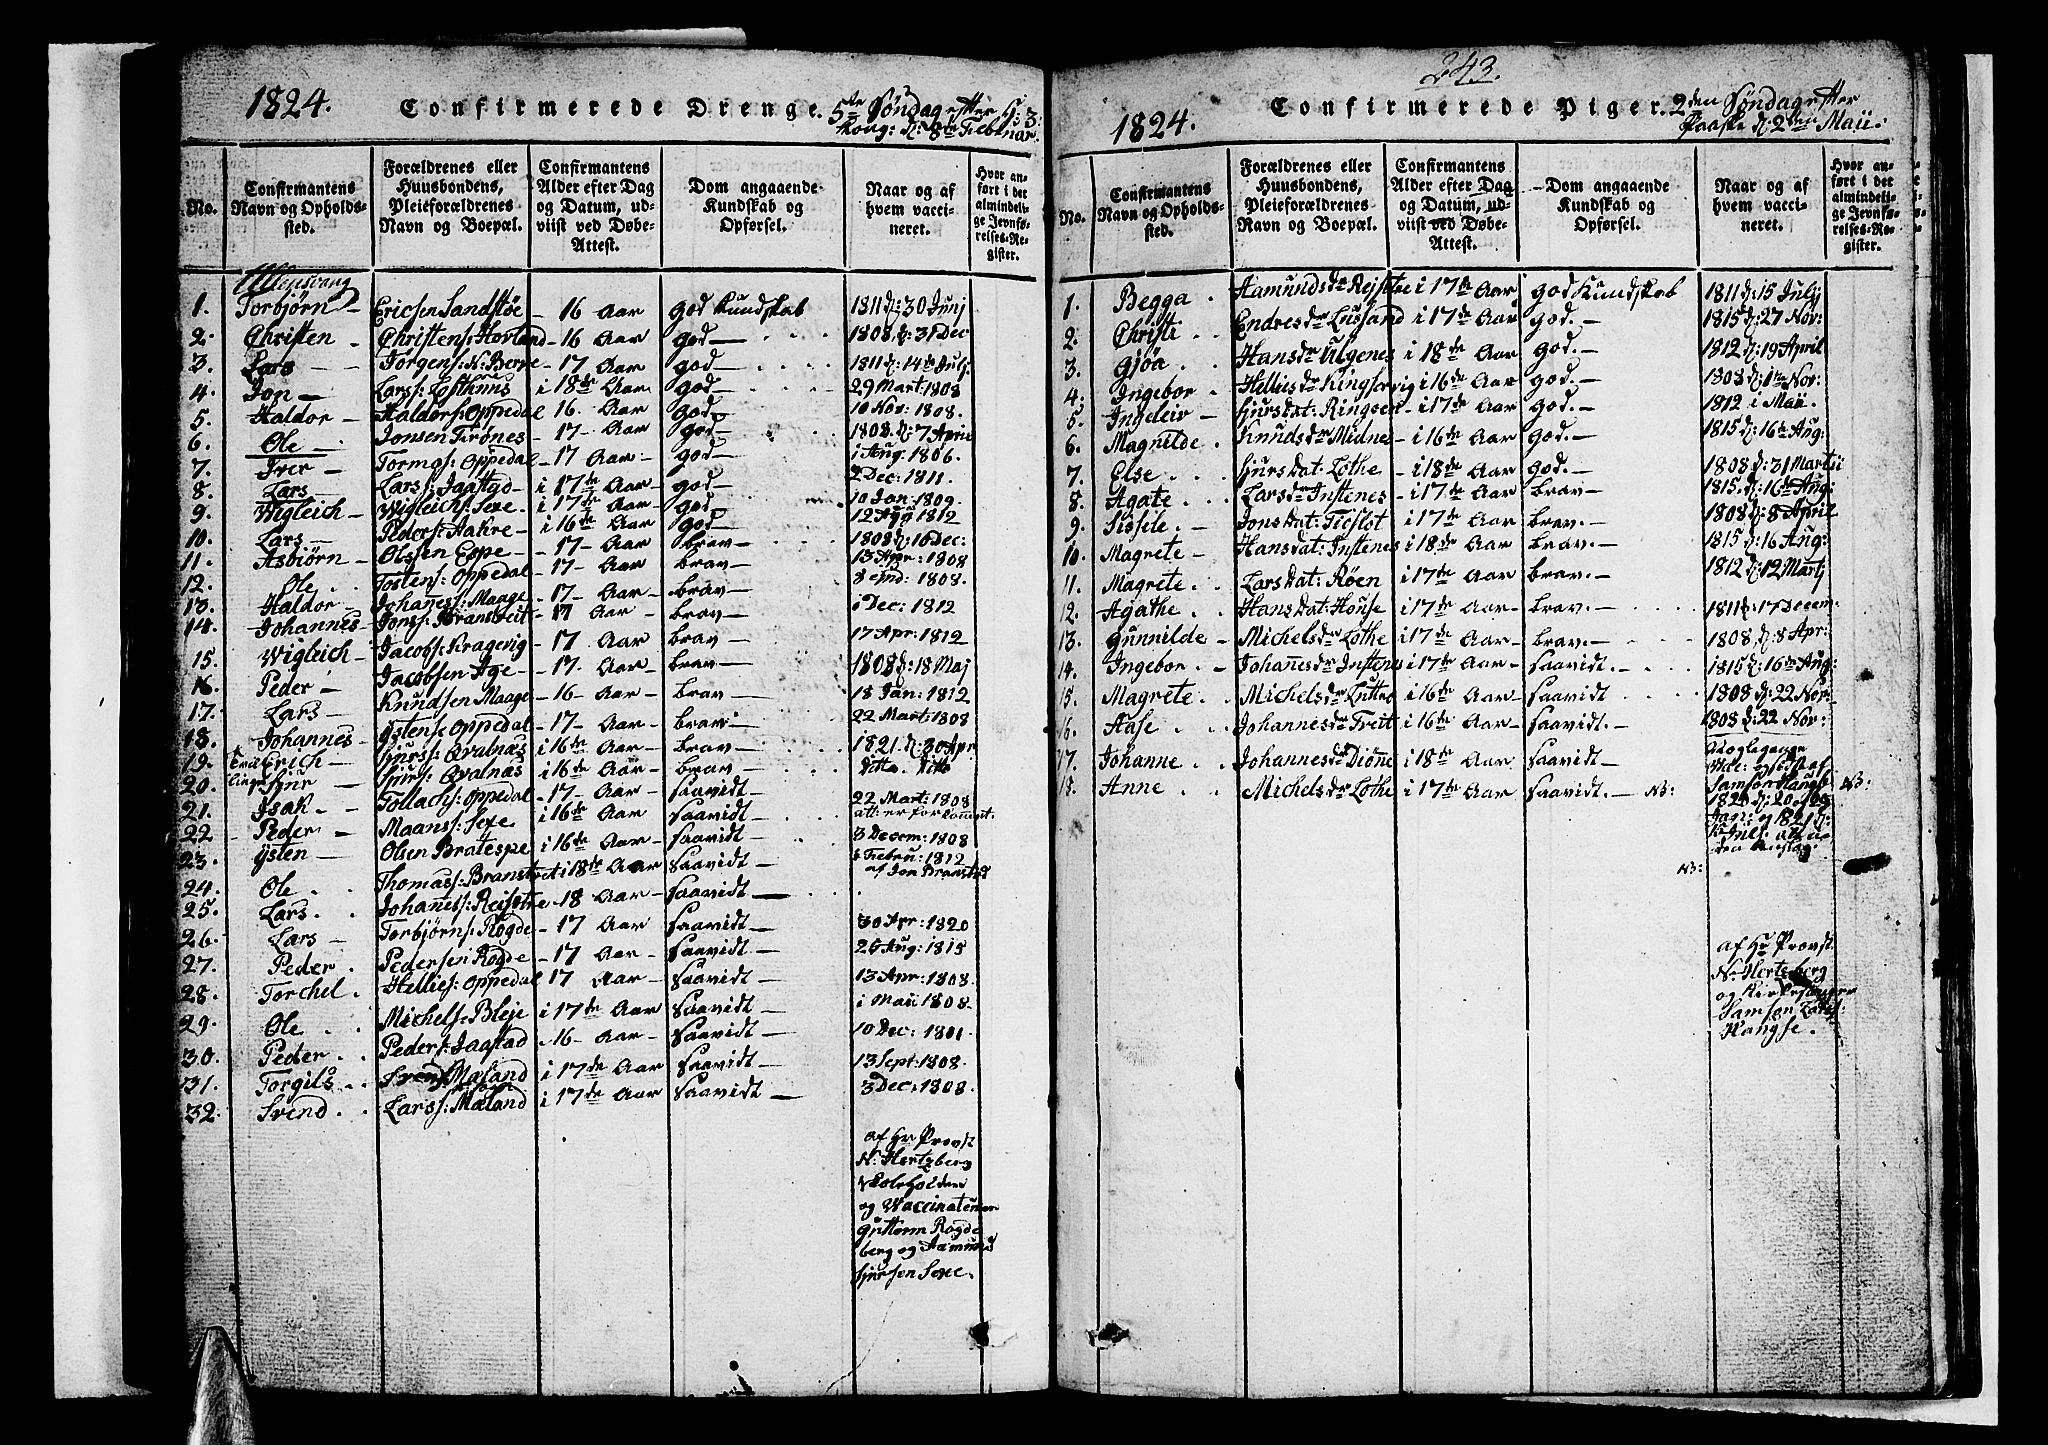 1824. Confirmerede Drenge. 5te Søndag efter H: 3:
Kong: d: 8de Februar.
No.
Confirmantens Navn og Opholdssted.
Forældrenes eller Huusbondens, Pleieforældrenes Navn og Boepæl.
Confirmantens Alder efter Dag og Datum, udviist ved Døbe-Attest.
Dom angaaende Kundskab og Opførsel.
Naar og af hvem vaccineret.
Hvor anført i det almindelige Jevnførelses-Register.
Ullensvang
1. Torbjørn Ericsen Sandstøe 16 Aar god Kundskab 1811 d: 30 Junj
2. Christen Christens: Hovland 16 Aar god 1808 d: 31 Dec
3. Lars Jørgens: N: Berve 17 Aar god 1811 d: 14de Julj
4. Jon Lars: i 18de Aar god 29 Mart: 1808
5. Haldor Haldors: Oppedal 16 Aar god 10 Nov: 1808.
6. Ole Jonsen Trønes 17 Aar god 1808 d: 7 April
7. Iver Tormos: Oppedal 17 Aar god i Aug: 1806.
8. Lars Lars: Jaastad i 17de Aar god 2 Dec: 1811.
9. Wigleich Wigleichs: Sexe i 17de Aar god 10 Jan: 1809.
10. Lars Peders: Aakre i 16de Aar god 12 Aug 1812
11. Asbiørn Olsen Espe 17 Aar brav 1808 d: 16 Dec:
12. Ole Tostens: Oppedal 17 Aar brav 13 Apr: 1808
13. Haldor Johanes: Maage 17 Aar brav 8 1808.
14. Johannes Jons: Bransteit 17 Aar brav i Dec: 1812
15. Wigleich Jacobs: Kragerig 17 Aar brav 17 Apr: 1812
16. Peder Jacobsen Age 17 Aar brav 1808 d: 18 Maj
17. Lars Knudsen Maage 16 Aar brav 18 Jan: 1812
18. Johannes Ystens: Oppedal 17 Aar brav 22 Mart: 1808
19. Erich Sjurs: Qvalnæs i 16de Aar brav 1821 d: 30 Apr
Tvillinger
20. Sjur Sjurs: Qvalnæs i 16de Aar brav Ditto Ditto
21. Isak Tollachs: Oppedal 17 Aar saavidt 22 Mart: 1808
22. Peder Maans: Sexe i 16de Aar saavidt att: er forkommet.
23. Ysten Olsen Bratespe i 16de Aar saavidt 8 Decem: 1808
24. Ole Thomas: Branstet i 18de Aar saavidt i Febru: 1812 af Jon Branstet
25. Lars. Johanes: Reisetre 18 Aar saavidt
26. Lars Torbjørns: Rogde 17 Aar saavidt 30 Apr: 1820
27. Peder. Pedersen Rogde 17 Aar saavidt 26 Aug: 1815
28. Torchel. Hellies: Oppedal 17 Aar saavidt 13 Apr: 1808.
29. Ole Michels: Bleje i 17de Aar saavidt i Maii 1808.
30. Peder Peders: Jaastad 16 Aar saavidt 10 Dec: 1801.
31. Torgils Svends: Mæland i 17de Aar saavidt 13 Sept: 1808.
32. Svend Lars: Mæland i 17de Aar saavidt 3 Dec: 1808.
af Hr Provst
N: Hertzberg
Skoleholder
og Vaccinateurer
Guttorm Rogde
berg og Aamund
Sjursen Sexe.
243.
1824. Confirmerede Piger. 2den Søndag efter
Paaske d: 2den Maii.
No.
Confirmantens Navn og Opholdssted.
Forældrenes eller Huusbondens, Pleieforældrenes Navn og Boepæl.
Confirmantens Alder efter Dag og Datum, udviist ved Døbe-Attest.
Dom angaaende Kundskab og Opførsel.
Naar og af hvem vaccineret.
Hvor anført i det almindelige Jevnførelses-Register.
1. Begga Aamundsdr Rejsetre i 17de Aar god Kundskab 1811 d: 15 Julj
2. Christi Endresdr Lusand i 17de Aar god. 1815 d: 27 Nov:
3. Gjøa Hansdr Ulgenes i 18de Aar god. 1812 d: 19 April
4. Ingebor Helliesdr Kingservig i 16de Aar god. 1808 d: 1te Nov:
5. Ingeleiv Sjursdat: Ringsen i 17de Aar god. 1812 i Maii
6. Magnilde Knudsdr Midnes i 16de Aar god. 1815 d: 16de Aug:
7. Else Sjursdat: Lothe i 18de Aar god. 1808 d: 31 Martii
8. Agate Larsdr Instenes i 17de Aar brav 1815. d: 16de Aug:
9. Sissele Jonsdat: Ticslot i 17de Aar brav. 1808 d: 8 April
10. Magrete Hansdat: Instenes i 18de Aar brav. 1815 d: 16 Aug:
11. Magrete Larsdat: Røen i 17de Aar brav. 1812 d: 12 Martj
12. Agathe Hansdat: House i 17de Aar brav. 1811 d: 17 Decem
13. Gunnilde Michelsdr Lothe i 17de Aar brav. 1808 d: 8 Apr:
14. Ingebor Johanesdr Instenes i 17de Aar saavidt. 1815 d: 16de Aug:
15. Magrete Michelsdr Lutro i 16de Aar saavidt 1808 d: 22 Nov:
16. Aase Johannesdr Freit i 16de Aar saavidt 1808 d: 22 Nov:
17. Johanne Johannesdr Diøne i 18de Aar saavidt
18. Anne Michelsdr Lothe i 17de Aar saavidt. NB:
af
Samson Haugse NB:
1821 d: 20
Jan: og 1821 d:
NB:
af Hr Provst
N: Hertzberg
og Kirkesanger
Samson Lars:
Haugse.